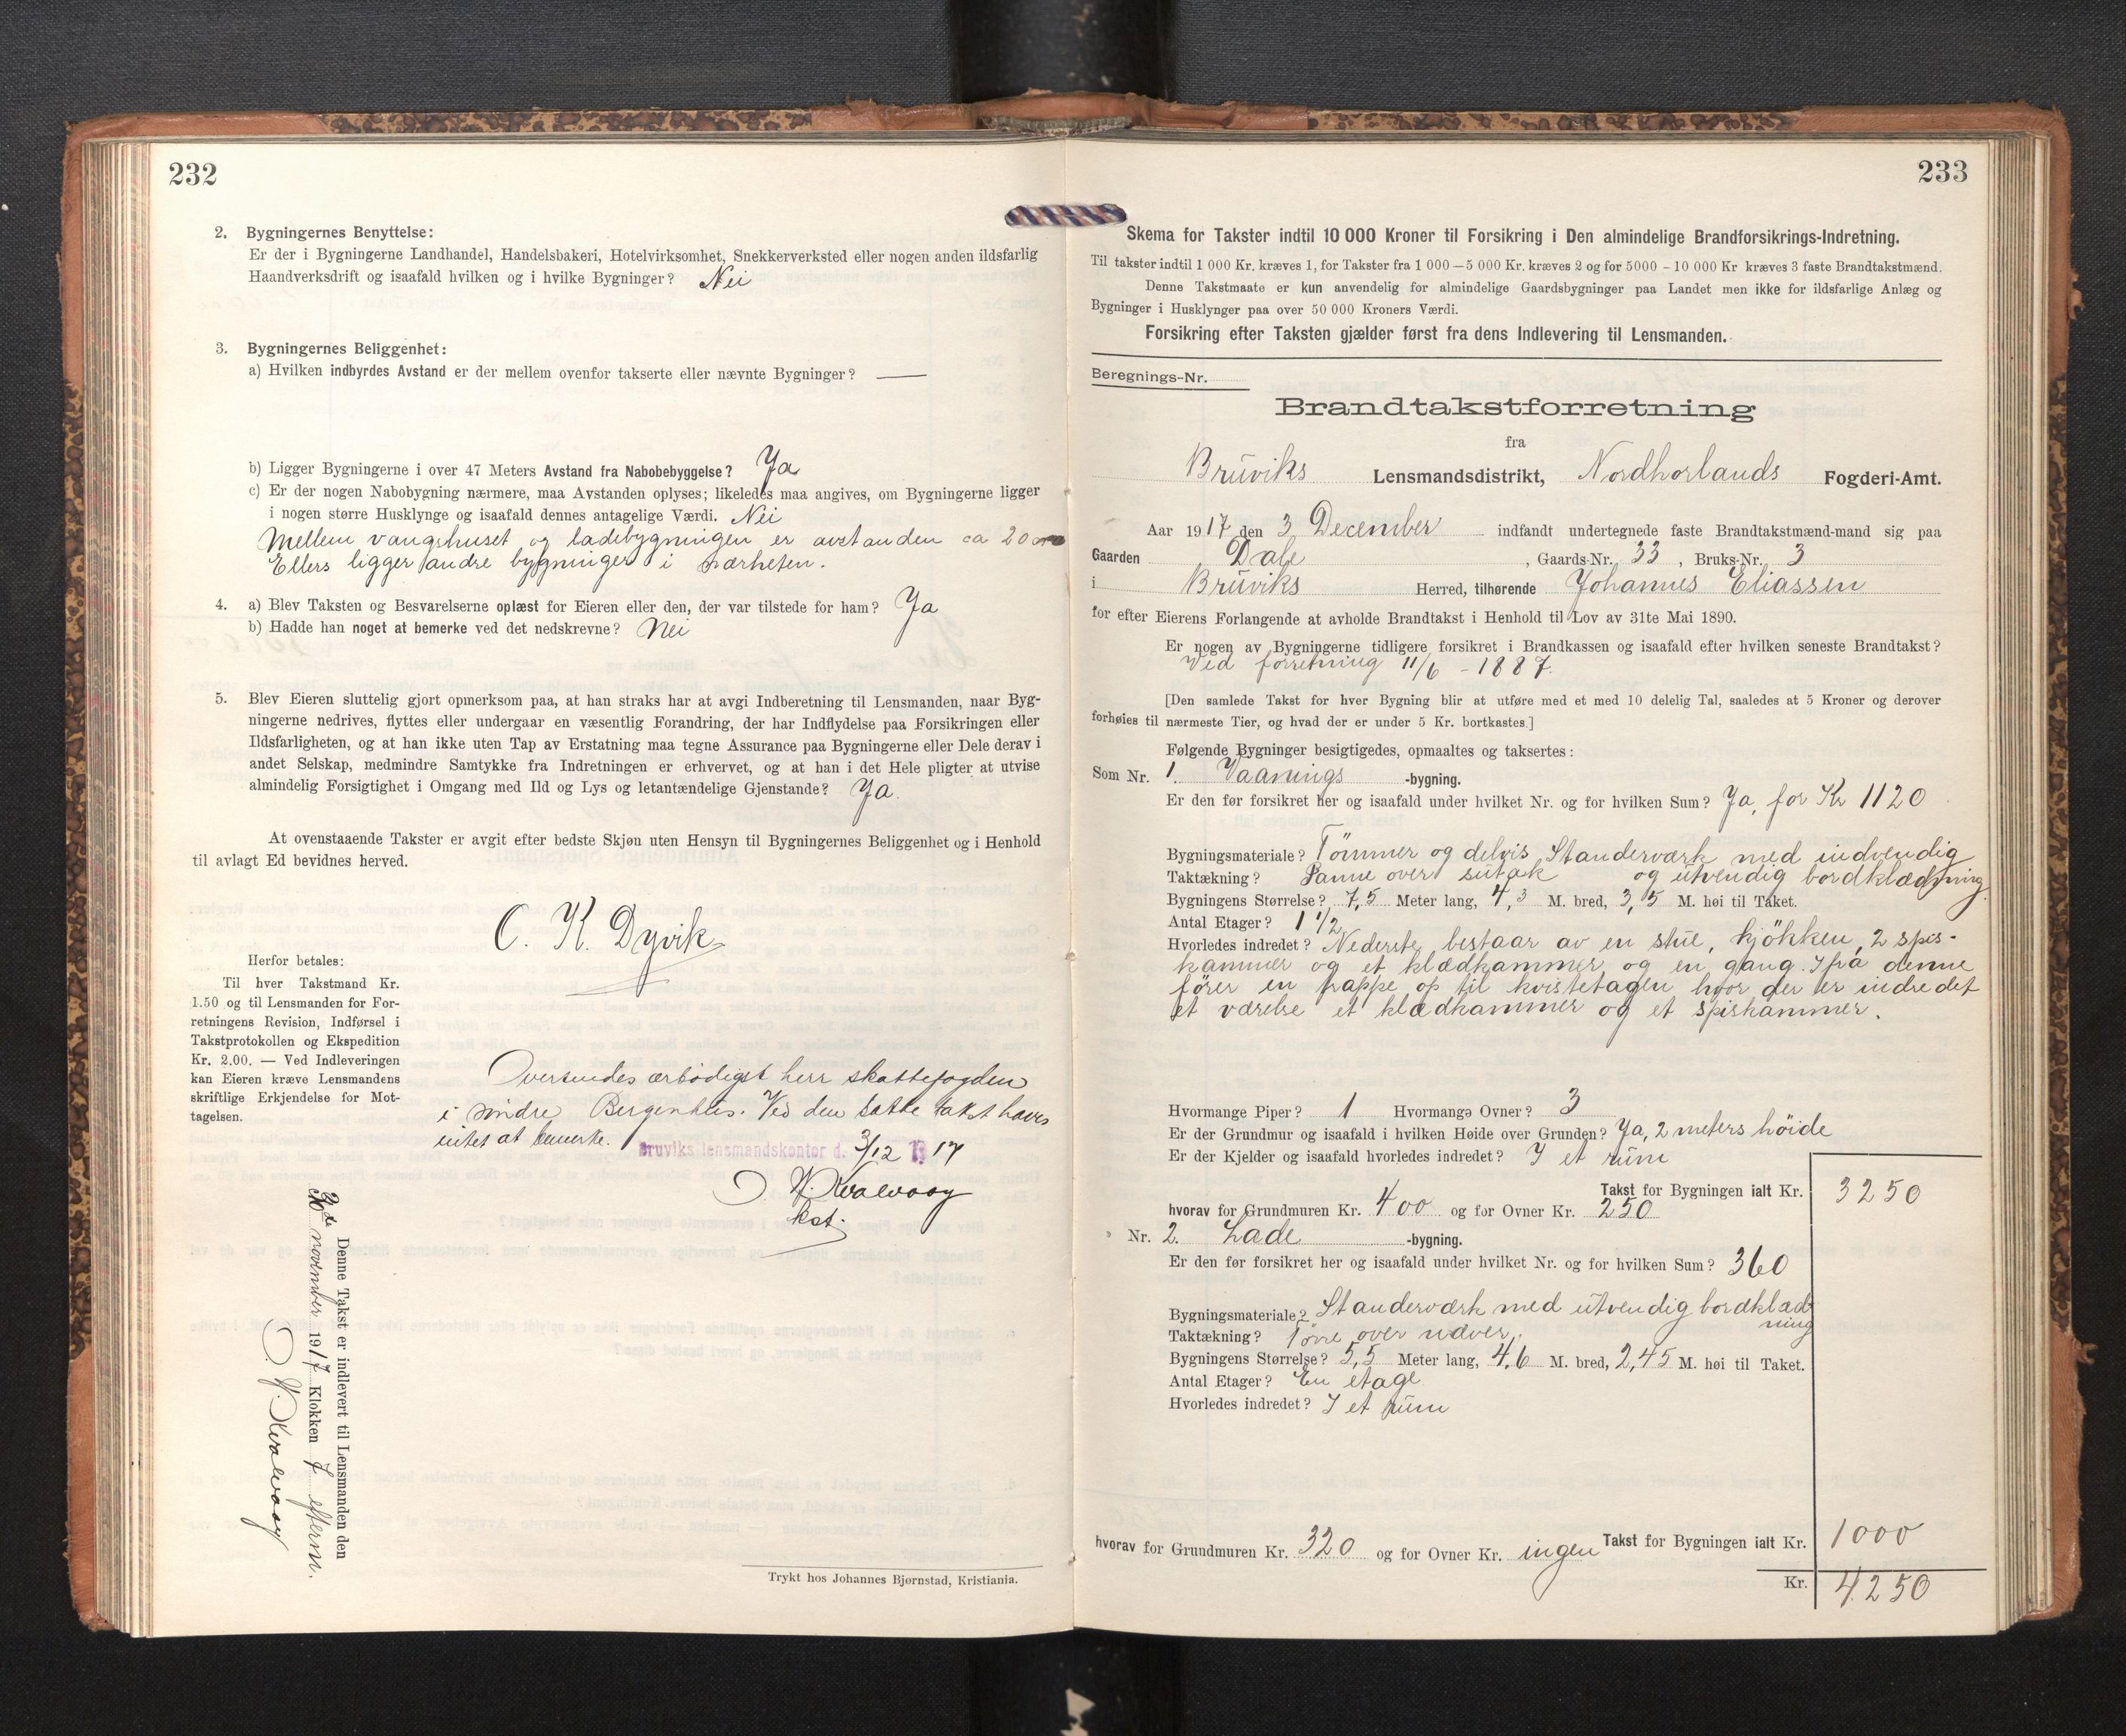 232
2. Bygningernes Benyttelse:
Er der i Bygningerne Landhandel, Handelsbakeri, Hotelvirksomhet, Snekkerverksted eller nogen anden ildsfarlig
Haandverksdrift og isaafald hvilken og i hvilke Bygninger? Nei
3. Bygningernes Beliggenhet:
a) Hvilken indbyrdes Avstand er der mellem ovenfor takserte eller nævnte Bygninger? —
b) Ligger Bygningerne i over 47 Meters Avstand fra Nabobebyggelse? Ja
c) Er der nogen Nabobygning nærmere, maa Avstanden oplyses; likeledes maa angives, om Bygningerne ligger
i nogen større Husklynge og isaafald dennes antagelige Værdi. Nei
Mellem vaagshuset og ladebygningen er avstanden ca 20 m
Ellers ligger andre bygninger i nærheten.
4. a) Blev Taksten og Besvarelserne oplæst for Eieren eller den, der var tilstede for ham? Ja
b) Hadde han noget at bemerke ved det nedskrevne? Nei
5. Blev Eieren sluttelig gjort opmerksom paa, at han straks har at avgi Indberetning til Lensmanden, naar Byg-
ningerne nedrives, flyttes eller undergaar en væsentlig Forandring, der har Indflydelse paa Forsikringen eller
Ildsfarligheten, og at han ikke uten Tap av Erstatning maa tegne Assurance paa Bygningerne eller Dele derav i
andet Selskap, medmindre Samtykke fra Indretningen er erhvervet, og at han i det Hele pligter at utvise
almindelig Forsigtighet i Omgang med Ild og Lys og letantændelige Gjenstande? Ja.
At ovenstaaende Takster er avgit efter bedste Skjøn uten Hensyn til Bygningernes Beliggenhet og i Henhold
til avlagt Ed bevidnes herved.
O. K. Dyvik
Herfor betales:
Til hver Takstmand Kr.
1.50 og til Lensmanden for For-
retningens Revision, Indførsel i
Takstprotokollen og Ekspedition
Kr. 2.00. — Ved Indleveringen
kan Eieren kræve Lensmandens
skriftlige Erkjendelse for Mot-
tagelsen.
Oversendes ærbødigst herr skattefogden
i søndre Bergenhus. Ved den satte takst haves
intet at bemerke.
Bruviks lensmandskontor d. 3/12 1917
O. W. Kvalvaag
kst.
Denne Takst er indlevert til Lensmanden den
3de november 1917 Klokken 7 efterm.
O. W. Kvalvaag
Trykt hos Johannes Bjørnstad, Kristiania.
233
Skema for Takster indtil 10 000 Kroner til Forsikring i Den almindelige Brandforsikrings-Indretning.
Til takster indtil 1 000 Kr. kræves 1, for Takster fra 1 000—5 000 Kr. kræves 2 og for 5000 - 10 000 Kr kræves 3 faste Brandtakstmænd.
Denne Takstmaate er kun anvendelig for almindelige Gaardsbygninger paa Landet men ikke for ildsfarlige Anlæg og
Bygninger i Husklynger paa over 50 000 Kroners Værdi.
Forsikring efter Taksten gjælder først fra dens Indlevering til Lensmanden.
Beregnings-Nr.
Brandtakstforretning
fra
Brüviks Lensmandsdistrikt, Nordhorlands Fogderi-Amt.
Aar 1917 den 3 December indfandt undertegnede faste Brandtakstmænd-mand sig paa
Gaarden Dale, Gaards-Nr. 33, Bruks-Nr. 3
i Brüviks Herred, tilhørende Johannes Eliassen
for efter Eierens Forlangende at avholde Brandtakst i Henhold til Lov av 31te Mai 1890.
Er nogen av Bygningerne tidligere forsikret i Brandkassen og isaafald efter hvilken seneste Brandtakst?
Ved forretning 11/6 - 1887.
[Den samlede Takst for hver Bygning blir at utføre med et med 10 delelig Tal, saaledes at 5 Kroner og derover
forhøies til nærmeste Tier, og hvad der er under 5 Kr. bortkastes.]
Følgende Bygninger besigtigedes, opmaaltes og taksertes:
Som Nr. 1. Vaanings -bygning.
Er den før forsikret her og isaafald under hvilket Nr. og for hvilken Sum? Ja, for Kr 1120
Bygningsmateriale? Tömmer og delvis Standerværk med indvendig
Taktækning? Panne over sutak og utvendig bordklædning
Bygningens Størrelse? 7,5 Meter lang, 4,3 M. bred, 3,5 M. høi til Taket.
Antal Etager? 1 1/2
Hvorledes indredet? Nederste bestaar av en stue, kjökken, 2 spis-
kammer og et klædkammer og en gang. Ifra denne
förer en trappe op til kvistetagen hvor der er indredet
et værelse et klædkammer og et spiskammer.
Hvormange Piper? 1 Hvormange Ovner? 3
Er der Grundmur og isaafald i hvilken Høide over Grunden? Ja, 2 meters höide
Er der Kjelder og isaafald hvorledes indredet? I et rum
Takst for Bygningen ialt Kr. 3250
hvorav for Grundmuren Kr. 400 og for Ovner Kr. 250
» Nr. 2. Lade -bygning.
Er den før forsikret her og isaafald under hvilket Nr. og for hvilken Sum? 360
Bygningsmateriale? Standerværk med utvendig bordklæd
ning
Taktækning? Torve over næver.
Bygningens Størrelse? 5,5 Meter lang, 4,6 M. bred, 2,45 M. høi til Taket.
Antal Etager? En etage
Hvorledes indredet? I et rum
Takst for Bygningen ialt Kr. 1000
hvorav for Grundmuren Kr. 320 og for Ovner Kr. ingen
Kr. 4250